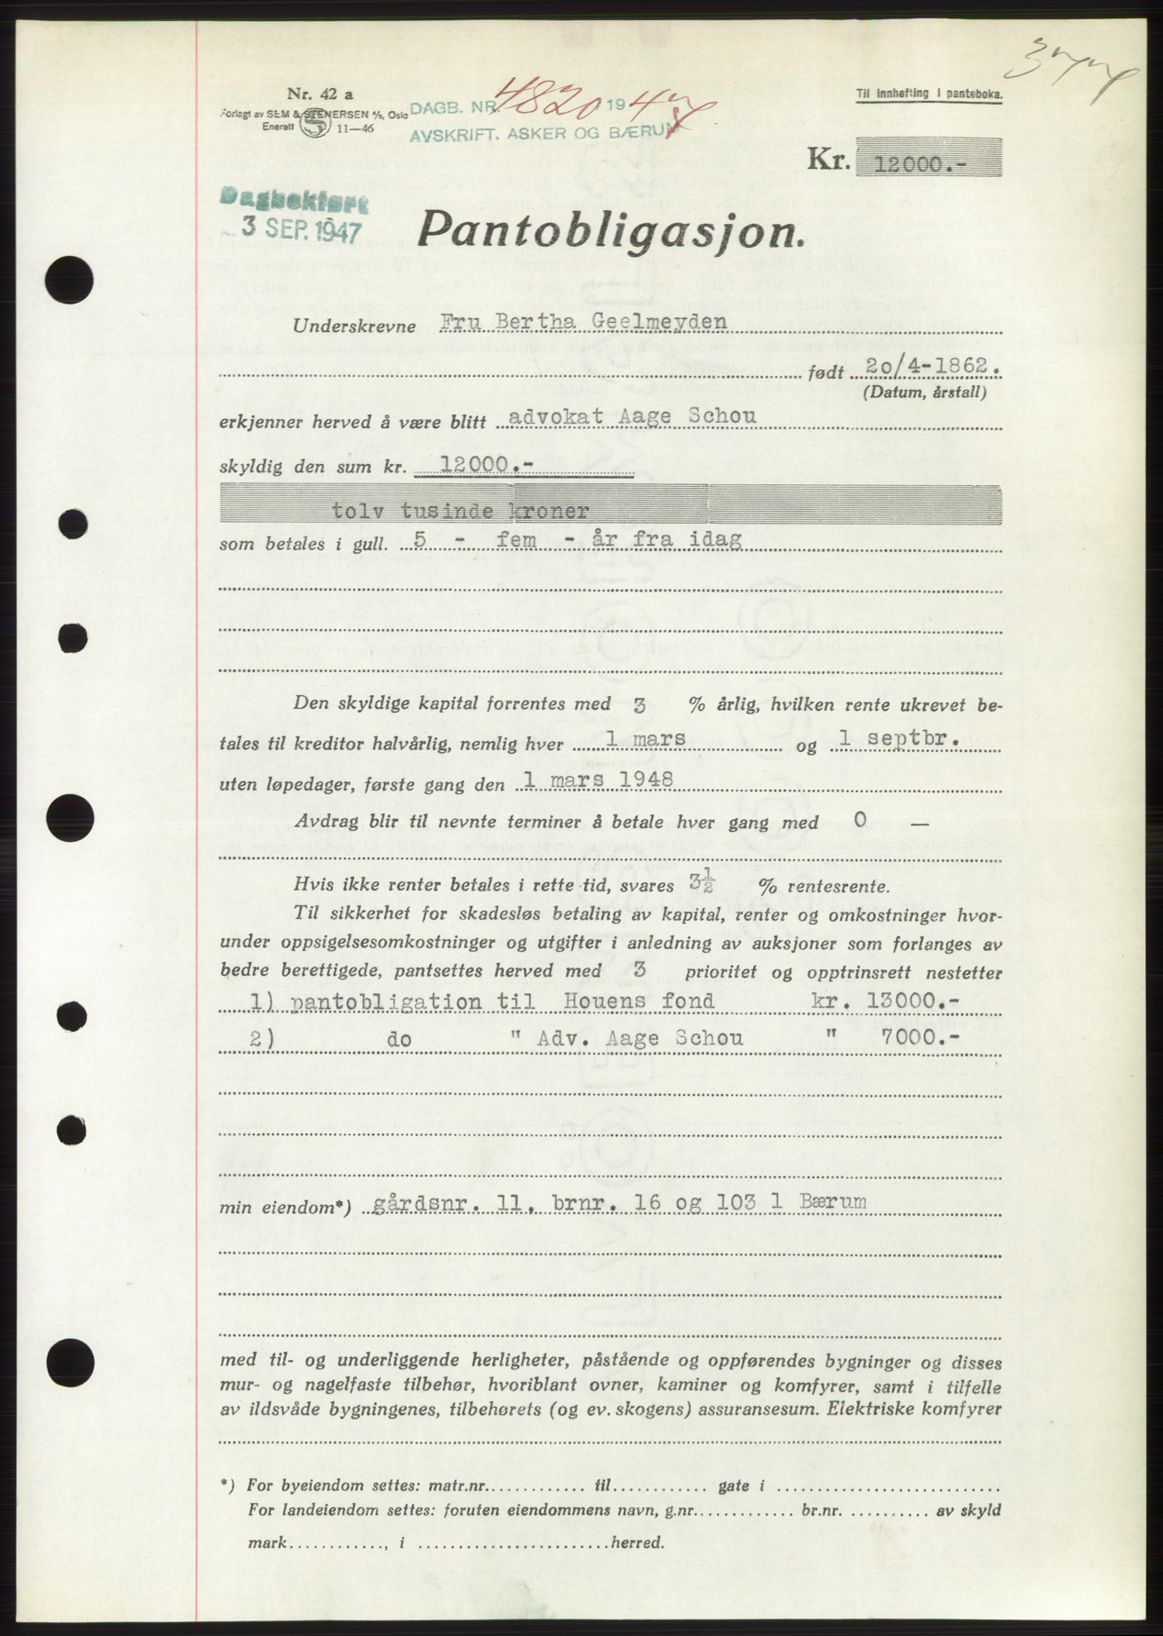 377
Nr. 42 a
Forlagt av SEM & STENERSEN A/S, Oslo
Enerett S 11—46
DAGB. NR. 4820 1947
AVSKRIFT. ASKER OG BÆRUM
Til innhefting i panteboka.
Kr. 12000.-
Dagbokført
3 SEP. 1947
Pantobligasjon.
Underskrevne Fru Bertha Geelmeyden
født 2o/4-1862.
(Datum, årstall)
erkjenner herved å være blitt advokat Aage Schou
skyldig den sum kr. 12000.-
tolv tusinde kroner
som betales i gull. 5 - fem - år fra idag
Den skyldige kapital forrentes med 3 % årlig, hvilken rente ukrevet be-
tales til kreditor halvårlig, nemlig hver 1 mars og 1 septbr.
uten løpedager, første gang den 1 mars 1948
Avdrag blir til nevnte terminer å betale hver gang med 0 —
Hvis ikke renter betales i rette tid, svares 3½ % rentesrente.
Til sikkerhet for skadesløs betaling av kapital, renter og omkostninger hvor-
under oppsigelsesomkostninger og utgifter i anledning av auksjoner som forlanges av
bedre berettigede, pantsettes herved med 3 prioritet og opptrinsrett nestetter
1) pantobligation til Houens fond kr. 13000.-
2) do " Adv. Aage Schou " 7000.-
min eiendom*) gårdsnr. 11, brnr. 16 og 103 i Bærum
med til- og underliggende herligheter, påstående og oppførendes bygninger og disses
mur- og nagelfaste tilbehør, hvoriblant ovner, kaminer og komfyrer, samt i tilfelle
av ildsvåde bygningenes, tilbehørets (og ev. skogens) assuransesum. Elektriske komfyrer
*) For byeiendom settes: matr.nr............. til............ gate i ............................
For landeiendom settes: foruten eiendommens navn, g.nr............. br.nr. .......... av skyld
mark............, i ........................herred.